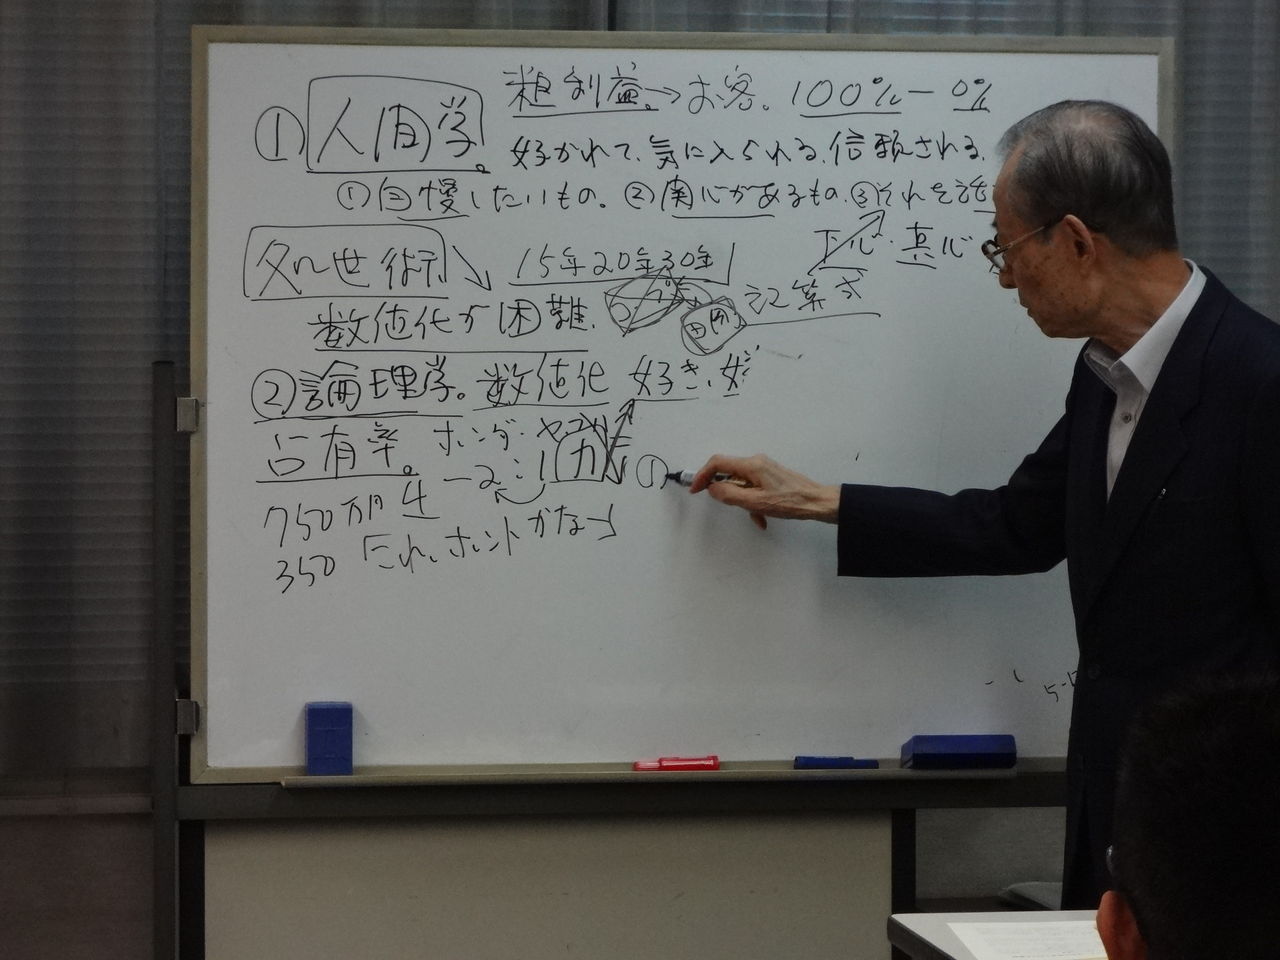 粗利益。→お客。100%-0%
①人間学。好かれて、気に入られる、信頼される、
①自慢したいもの。②関心があるもの、③それを
下心・真心
処世術 15年20年30年
数値化が困難、
②論理学。数値化 好き、嫌
占有率。ホンダ・ヤマハ
2:1
①
750万円 4
350 「これ、ホントかな」